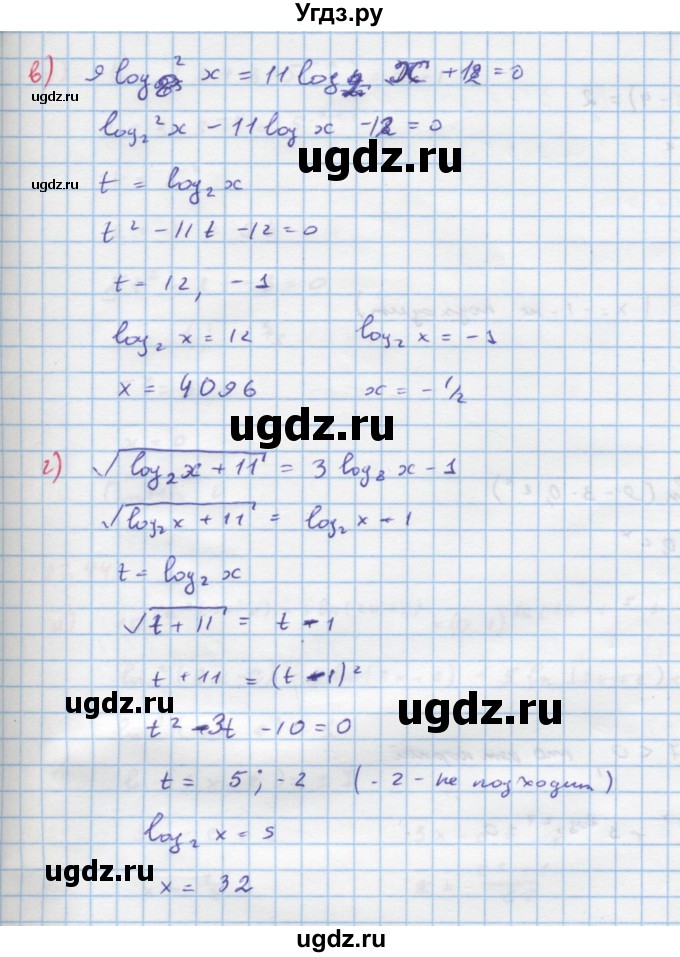 Угдз.ру
в) 9 log₈² x = 11 log₂ x + 12 = 0
ugdz.ru
log₂² x - 11 log x - 12 = 0
ugdz.ru
ugdz.ru
t = log₂ x
t² - 11t - 12 = 0
t = 12, -1
log₂ x = 12 log₂ x = -1
x = 4096 x = -1/2
ugdz.ru
г) √(log₂x + 11) = 3 log₈ x - 1
√(log₂x + 11) = log₂ x - 1
t = log₂ x
√(t + 11) = t - 1
t + 11 = (t - 1)²
ugdz.ru ugdz.ru
t² - 3t - 10 = 0
t = 5; -2 (-2 - не подходит)
log₂ x = 5
ugdz.ru ugdz.ru
x = 32
ugdz.ru